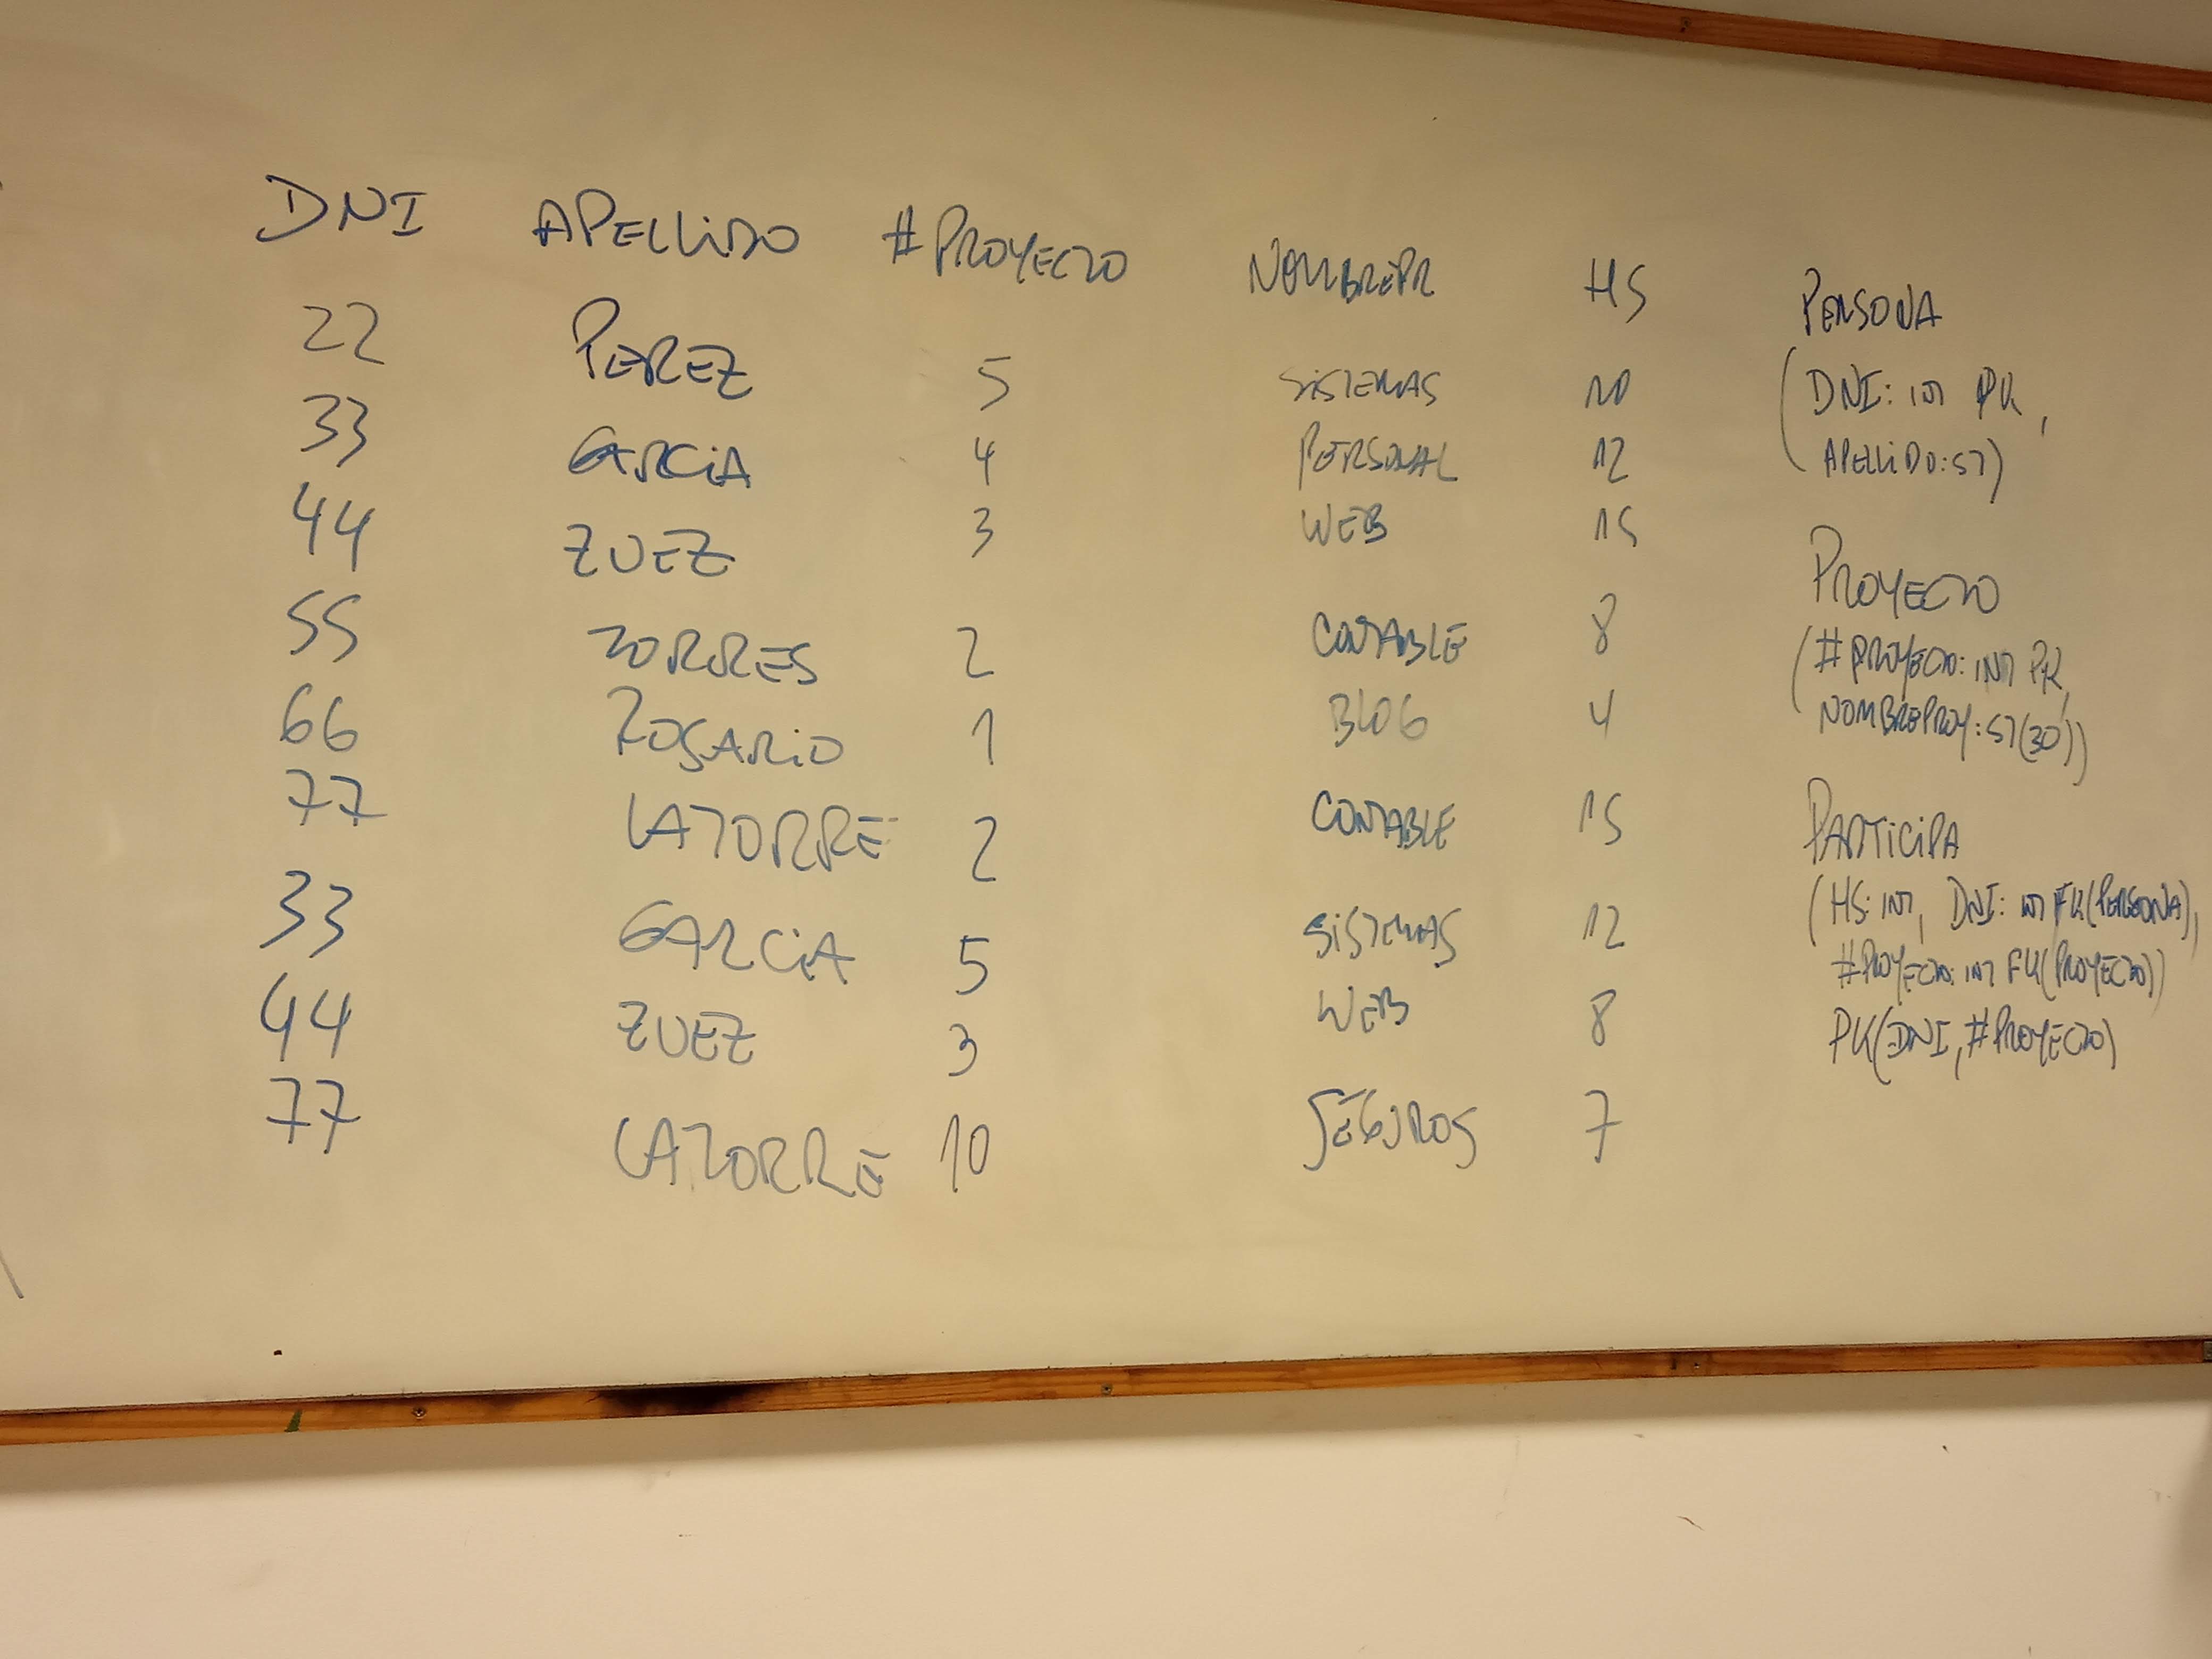 DNI APELLIDO #PROYECTO NOMBREPR HS
22 PEREZ 5 SISTEMAS 10
33 GARCIA 4 PERSONAL 12
44 ZUEZ 3 WEB 15
55 TORRES 2 CONTABLE 8
66 ROSARIO 1 BLOG 4
77 LATORRE 2 CONTABLE 15
33 GARCIA 5 SISTEMAS 12
44 ZUEZ 3 WEB 8
77 LATORRE 10 SEGUROS 7
PERSONA
(DNI: INT PK,
APELLIDO: ST)
PROYECTO
(#PROYECTO: INT PK,
NOMBREPROY: ST(30))
PARTICIPA
(HS: INT, DNI: INT FK(PERSONA),
#PROYECTO: INT FK(PROYECTO))
PK(DNI, #PROYECTO)